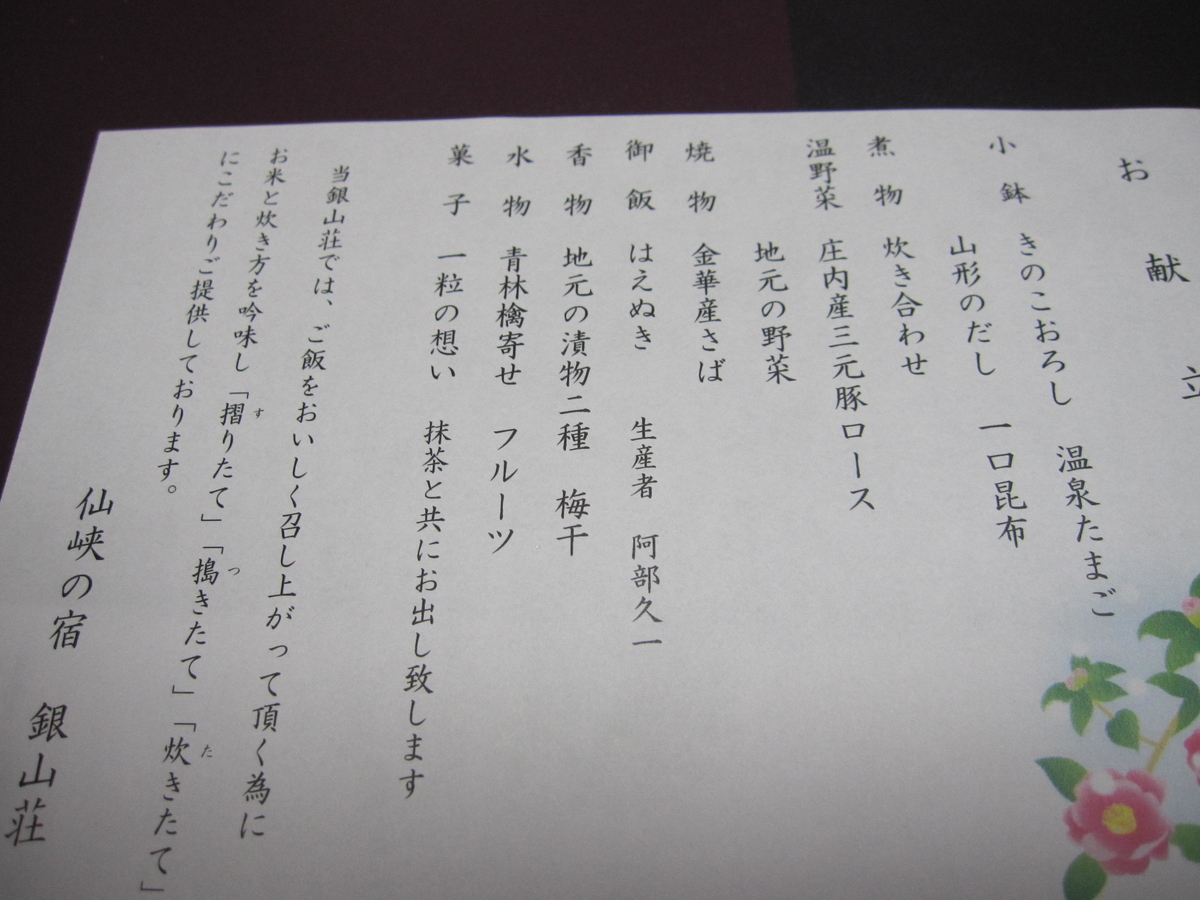 お献立
小鉢 きのこおろし 温泉たまご
山形のだし 一口昆布
煮物 炊き合わせ
温野菜 庄内産三元豚ロース
地元の野菜
焼物 金華産さば
御飯 はえぬき 生産者 阿部久一
香物 地元の漬物二種 梅干
水物 青林檎寄せ フルーツ
菓子 一粒の想い 抹茶と共にお出し致します
当銀山荘では、ご飯をおいしく召し上がって頂く為に
お米と炊き方を吟味し「摺りたて」「搗きたて」「炊きたて」
す つ た
にこだわりご提供しております。
仙峡の宿 銀山荘